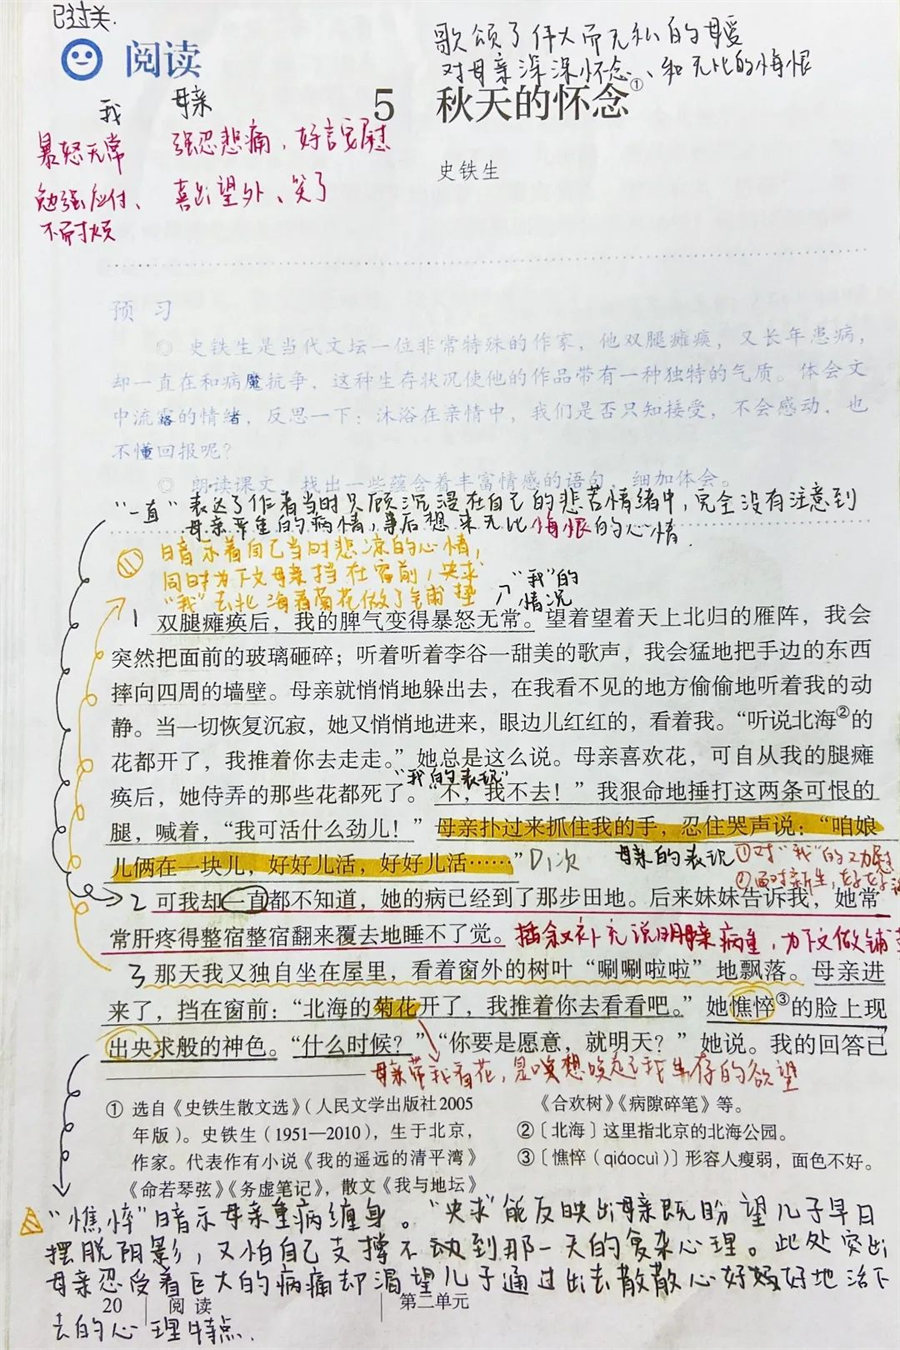 已过关.
阅读
歌颂了伟大而无私的母爱
对母亲深深怀念、和无比的悔恨
我 母亲
5 秋天的怀念①
暴怒无常 强忍悲痛,好言安慰
史铁生
勉强应付、 喜出望外、笑了
不耐烦
预习
◎ 史铁生是当代文坛一位非常特殊的作家,他双腿瘫痪,又长年患病,
却一直在和病魔抗争,这种生存状况使他的作品带有一种独特的气质。体会文
中流露的情绪,反思一下:沐浴在亲情中,我们是否只知接受,不会感动,也
不懂回报呢?
◎ 朗读课文,找出一些蕴含着丰富情感的语句,细加体会。
"一直"表达了作者当时只顾沉浸在自己的悲苦情绪中,完全没有注意到
母亲严重的病情,事后想来无比悔恨的心情.
暗示着自己当时悲凉的心情,
同时为下文母亲挡在窗前,央求
"我"去北海看菊花做了铺垫
"我"的
情况
1 双腿瘫痪后,我的脾气变得暴怒无常。望着望着天上北归的雁阵,我会
突然把面前的玻璃砸碎;听着听着李谷一甜美的歌声,我会猛地把手边的东西
摔向四周的墙壁。母亲就悄悄地躲出去,在我看不见的地方偷偷地听着我的动
静。当一切恢复沉寂,她又悄悄地进来,眼边儿红红的,看着我。“听说北海②的
花都开了,我推着你去走走。”她总是这么说。母亲喜欢花,可自从我的腿瘫
"我的表现"
痪后,她侍弄的那些花都死了。“不,我不去!”我狠命地捶打这两条可恨的
腿,喊着,“我可活什么劲儿!”母亲扑过来抓住我的手,忍住哭声说:“咱娘
儿俩在一块儿,好好儿活,好好儿活……”
母亲的表现 ①对"我"的
2 可我却一直都不知道,她的病已经到了那步田地。后来妹妹告诉我,她常
常肝疼得整宿整宿翻来覆去地睡不了觉。 插叙补充说明母亲病重,为下文做铺
3 那天我又独自坐在屋里,看着窗外的树叶“唰唰啦啦”地飘落。母亲进
来了,挡在窗前:“北海的菊花开了,我推着你去看看吧。”她憔悴③的脸上现
出央求般的神色。“什么时候?”“你要是愿意,就明天?”她说。我的回答已
母亲带我看花,是想唤起我生存的欲望
① 选自《史铁生散文选》(人民文学出版社2005
年版)。史铁生(1951—2010),生于北京,
作家。代表作有小说《我的遥远的清平湾》
《命若琴弦》《务虚笔记》,散文《我与地坛》
《合欢树》《病隙碎笔》等。
②〔北海〕这里指北京的北海公园。
③〔憔悴(qiáocuì)〕形容人瘦弱,面色不好。
"憔悴"暗示母亲重病缠身。"央求"能反映出母亲既盼望儿子早日
摆脱阴影,又怕自己支撑不动到那一天的复杂心理。此处突出
母亲忍受着巨大的病痛却渴望儿子通过出去散散心好好地活下
20 阅读 第二单元
去的心理特点.